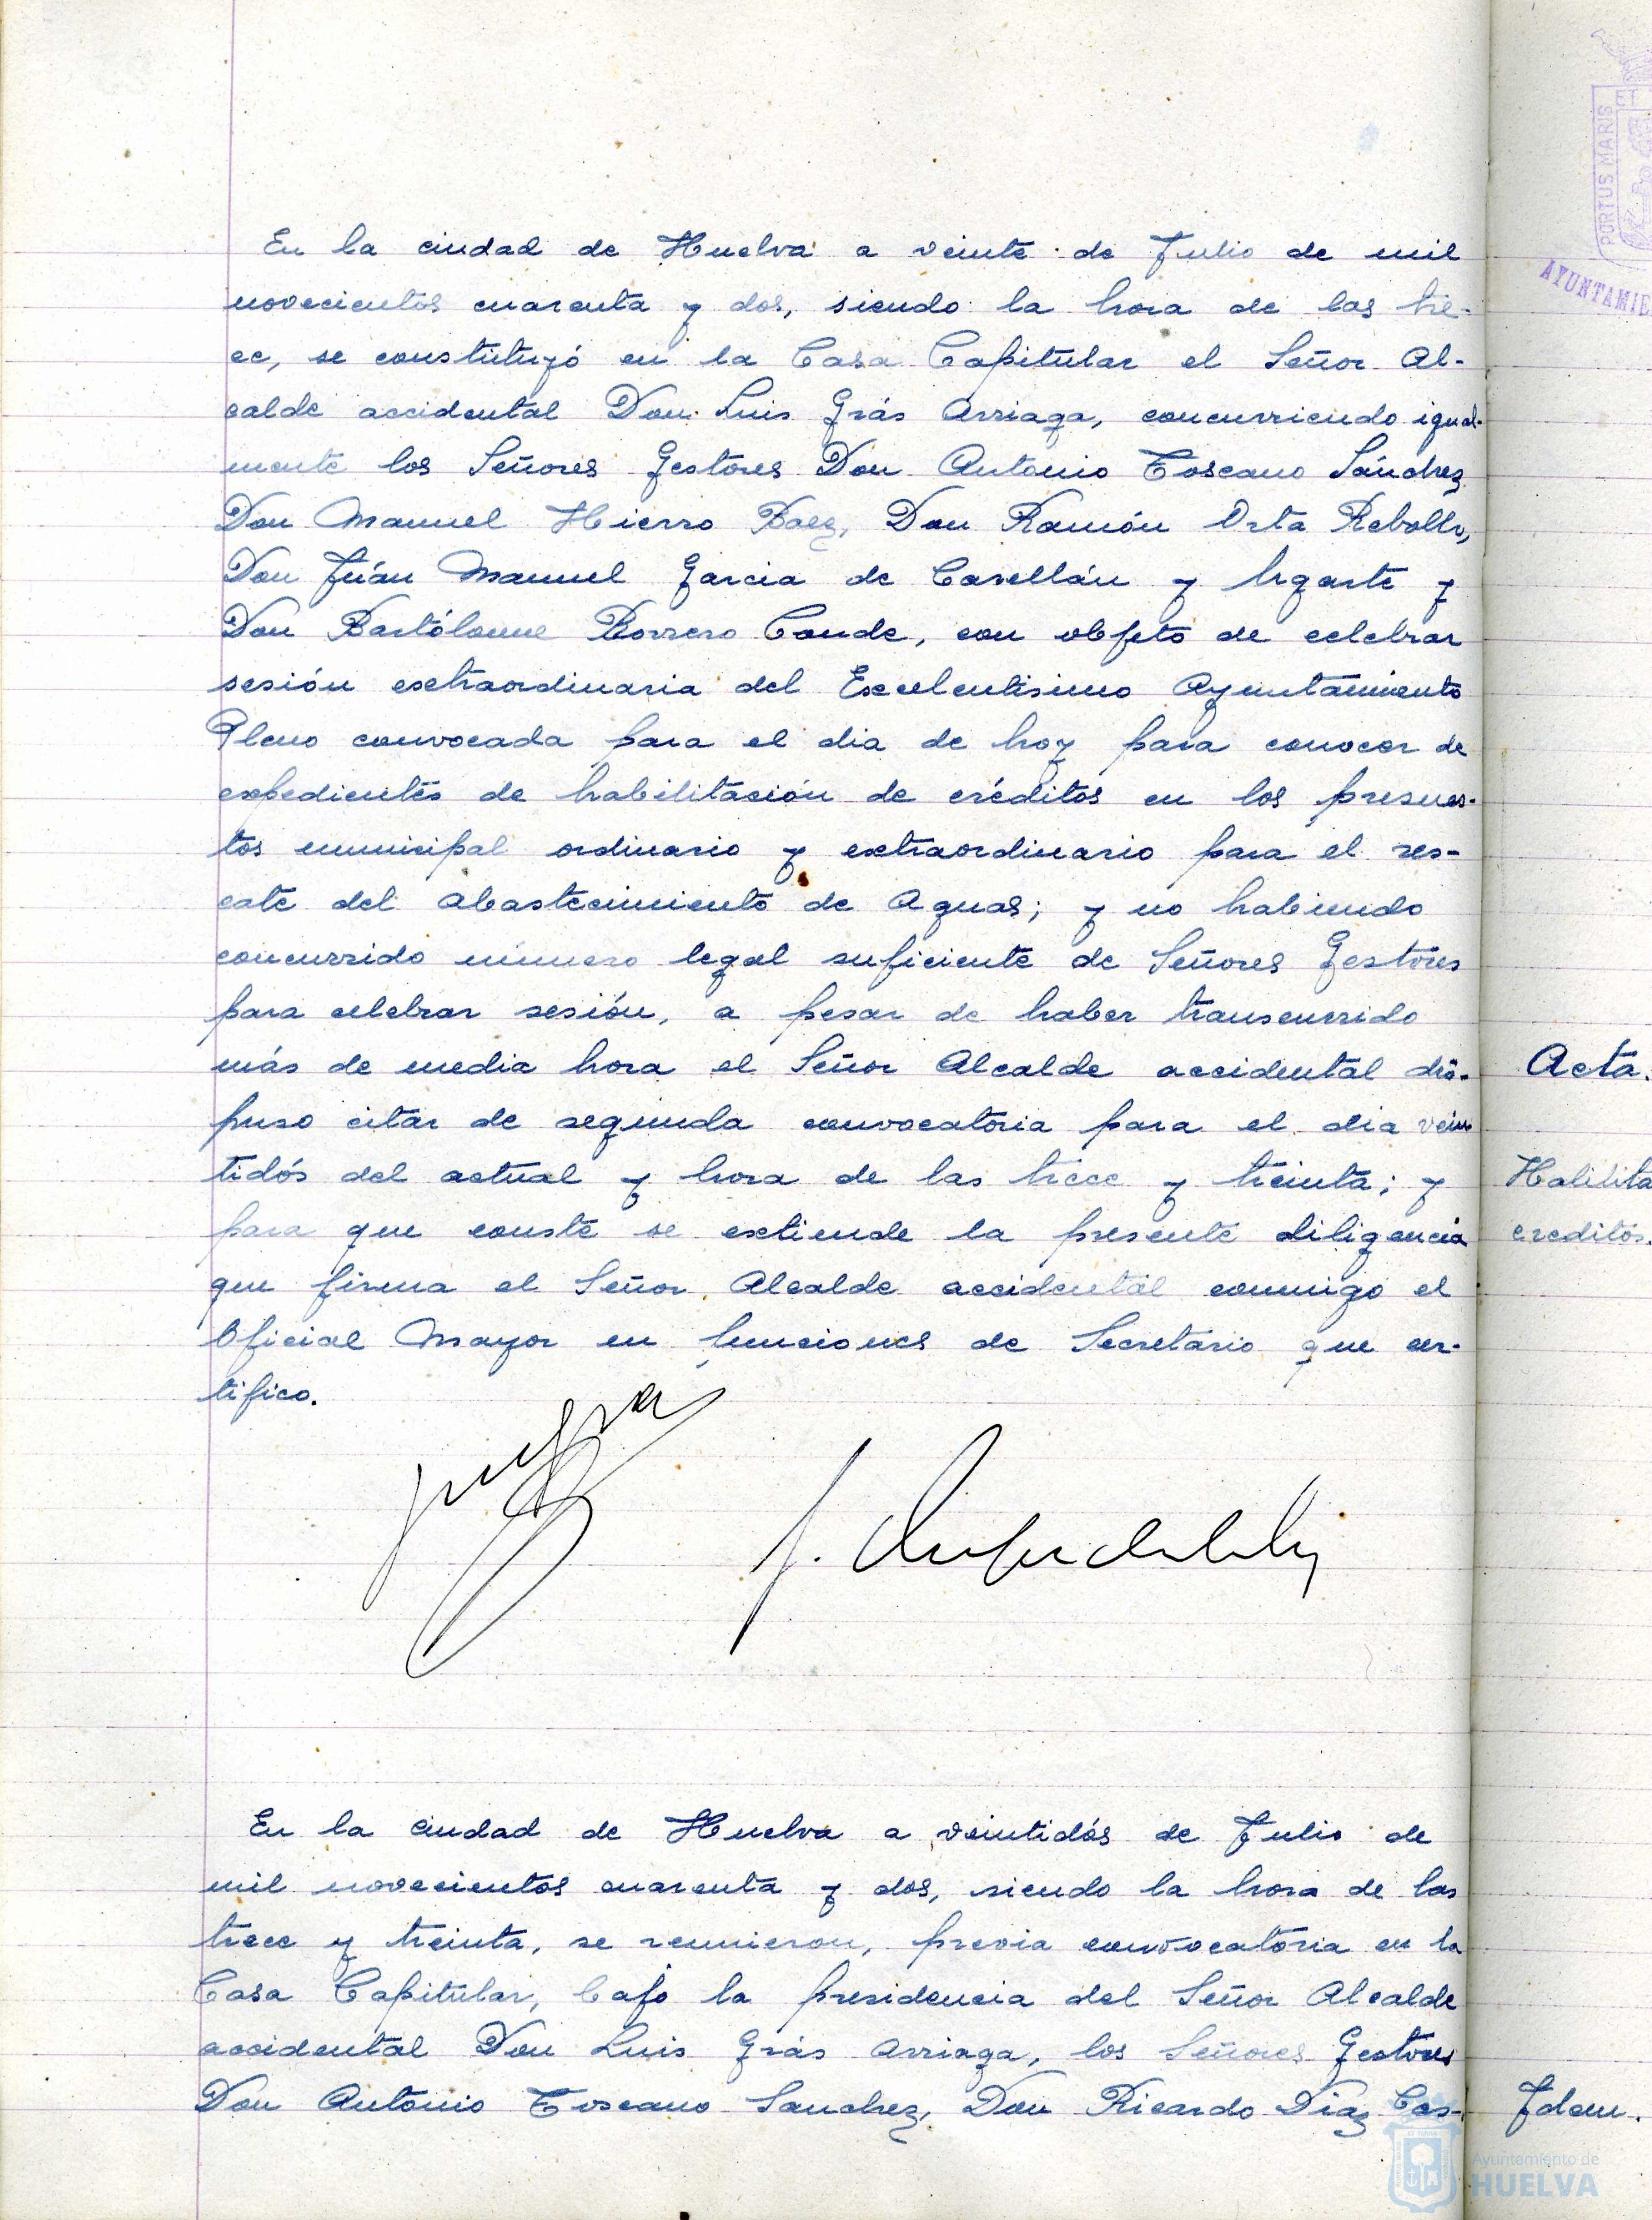 En la ciudad de Huelva a veinte de Julio de mil
novecientos cuarenta y dos, siendo la hora de las tre-
ce, se constituyó en la Casa Capitular el Señor Al-
calde accidental Don Luis Grás Arriaga, concurriendo igual-
mente los Señores Gestores Don Antonio Toscano Sánchez
Don Manuel Hierro Baez, Don Ramón Orta Rebollo,
Don Juán Manuel Garcia de Cavellán y Ugarte y
Don Bartólome Borrero Conde, con objeto de celebrar
sesión extraordinaria del Excelentisimo Ayuntamiento
Pleno convocada para el dia de hoy para conocer de
expedientes de habilitación de créditos en los presues-
tos municipal ordinario y extraordinario para el res-
cate del abastecimiento de Aguas; y no habiendo
concurrido número legal suficiente de Señores Gestores
para celebrar sesión, a pesar de haber transcurrido
más de media hora el Señor Alcalde accidental dis-
puso citar de segunda convocatoria para el dia vein
tidós del actual y hora de las trece y treinta; y
para que conste se extiende la presente diligencia
que firma el Señor Alcalde accidental conmigo el
Oficial Mayor en funciones de Secretario que cer-
tifico.
En la ciudad de Huelva a veintidós de Julio de
mil novecientos cuarenta y dos, siendo la hora de las
trece y treinta, se reunieron, previa convocatoria en la
Casa Capitular, bajo la presidencia del Señor Alcalde
accidental Don Luis Grás Arriaga, los Señores Gestores
Don Antonio Toscano Sanchez, Don Ricardo Diaz Cas-
PORTUS MARIS ET
AYUNTAMIE
Acta.
Habilita
creditos.
Idem.
Ayuntamiento de
HUELVA